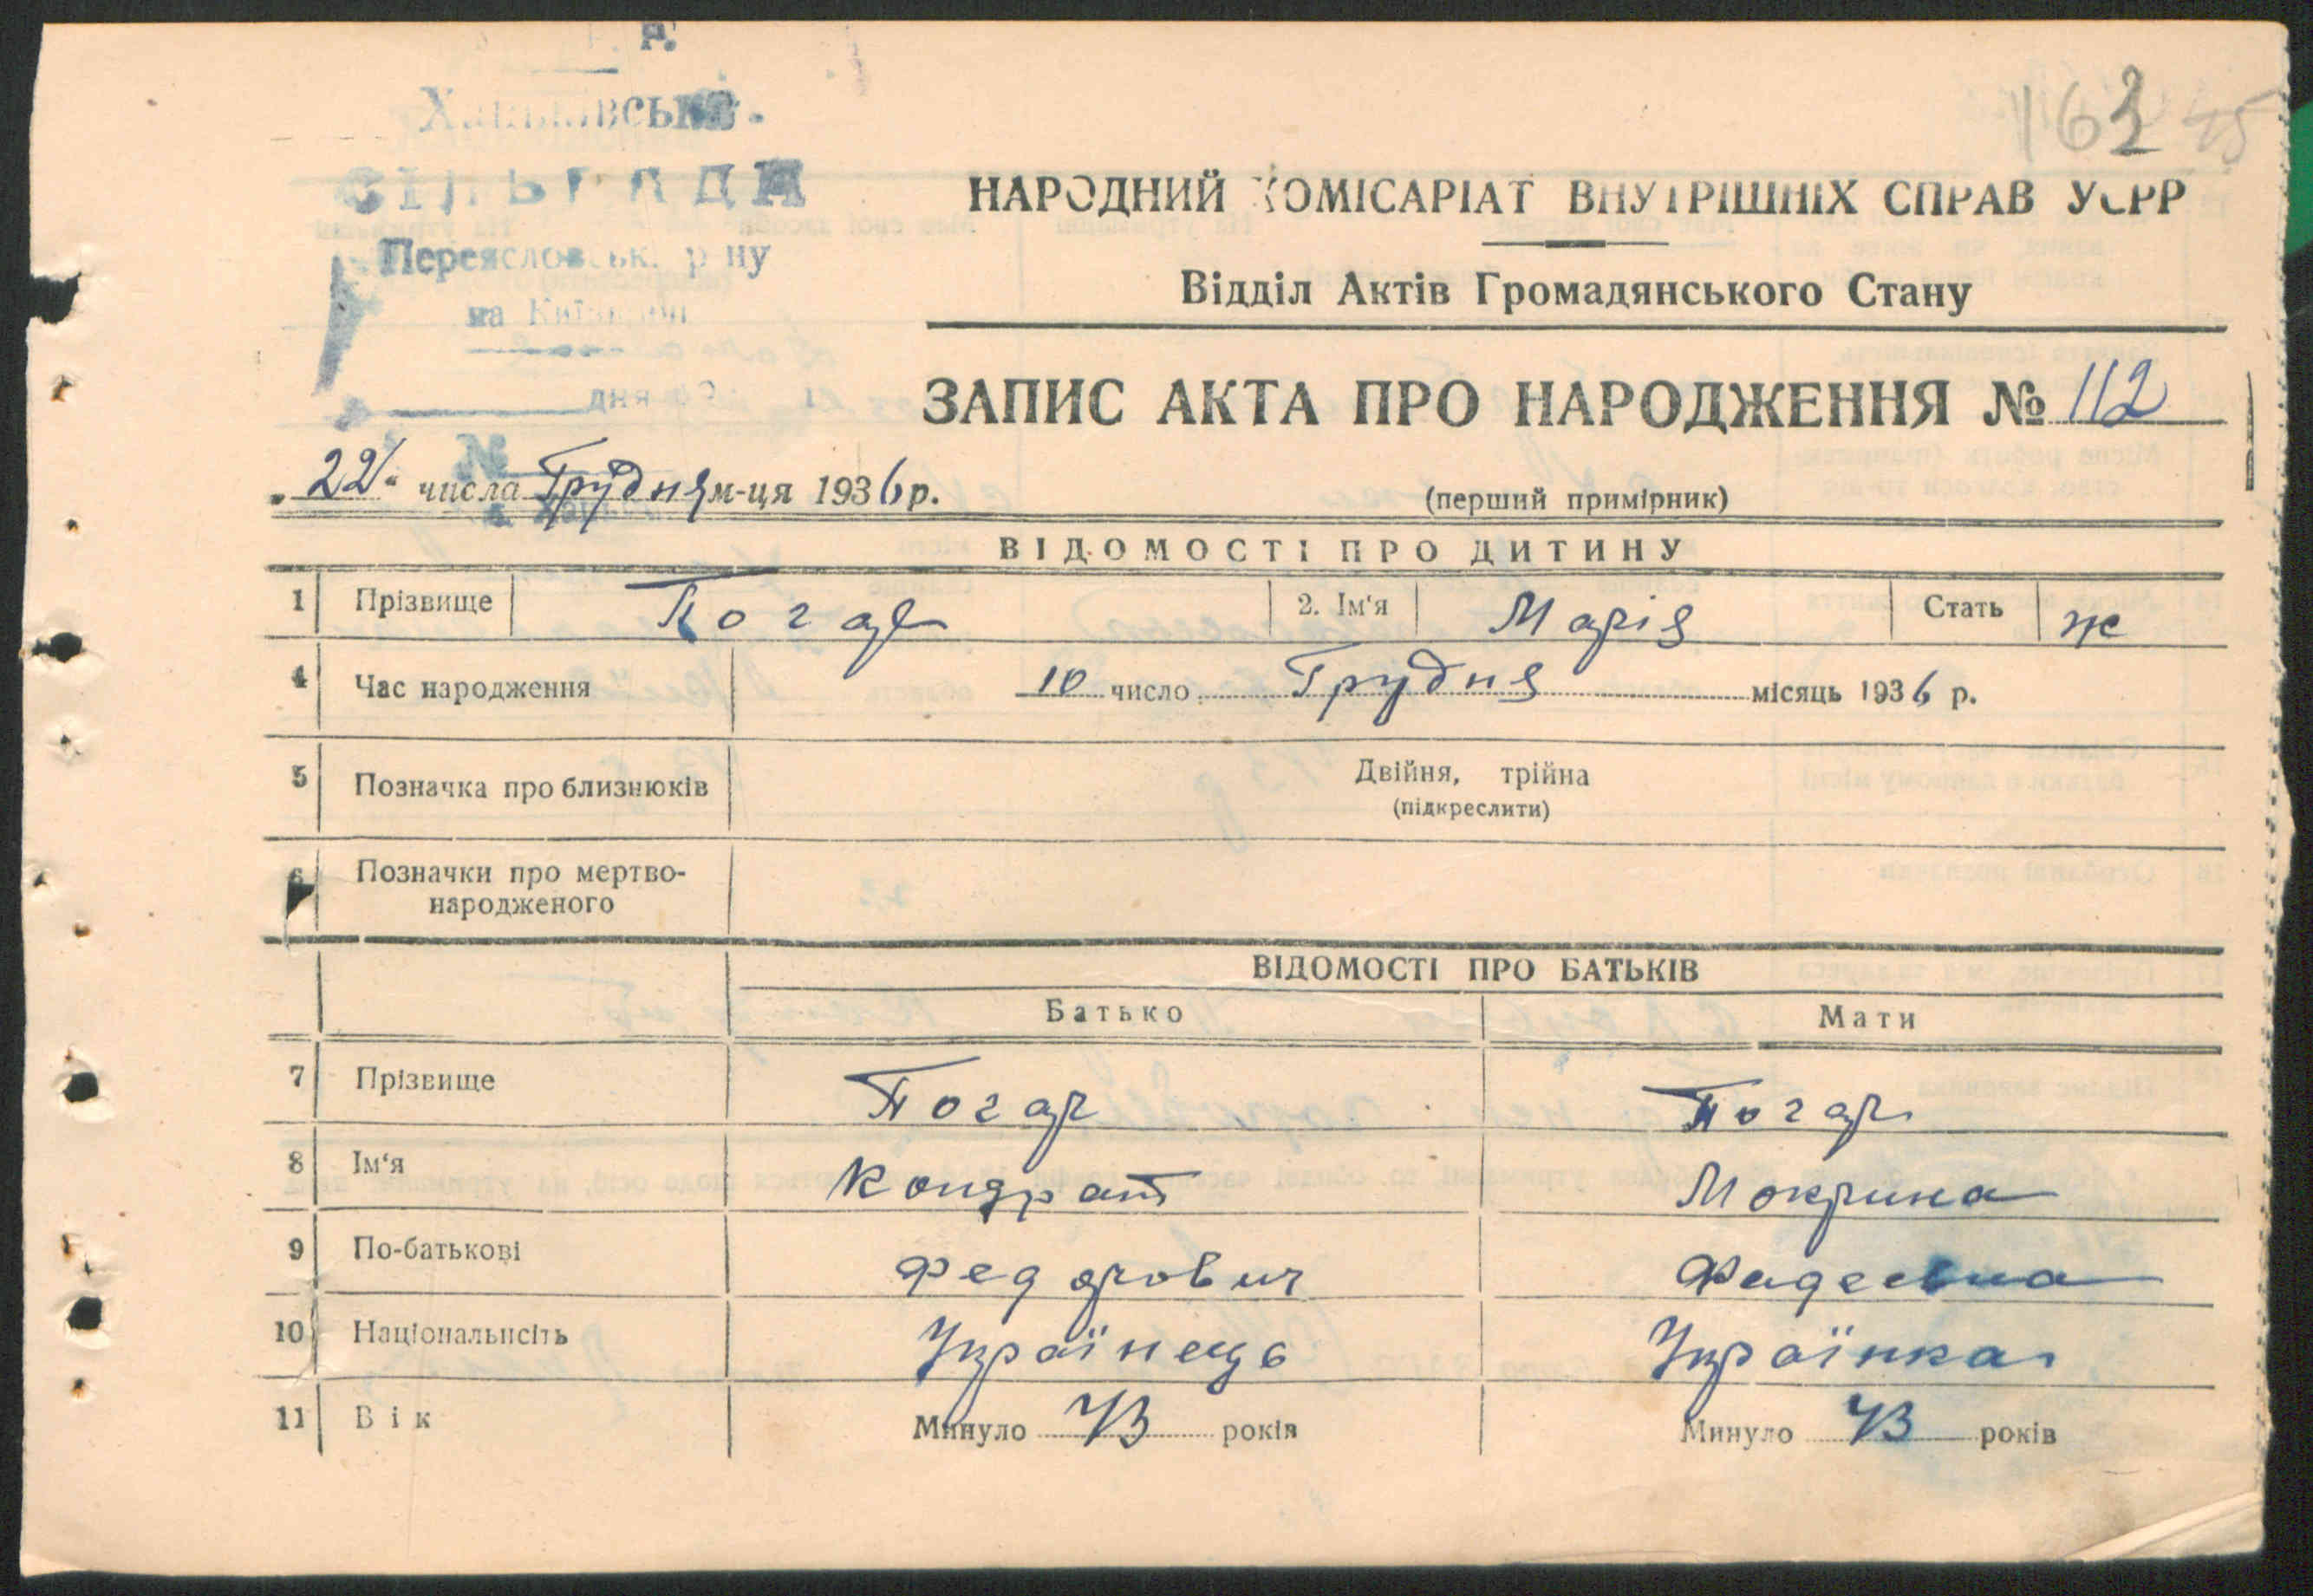 163
НАРОДНИЙ КОМІСАРІАТ ВНУТРІШНІХ СПРАВ УСРР
СІЛЬРАДА
Переясловськ. р-ну
на Київщині
Відділ Актів Громадянського Стану
дня
ЗАПИС АКТА ПРО НАРОДЖЕННЯ № 112
№
„22“ числа Грудня м-ця 1936 р.
(перший примірник)
ВІДОМОСТІ ПРО ДИТИНУ
1 Прізвище Погар 2. Ім'я Марія Стать ж
4 Час народження 10 число Грудня місяць 1936 р.
5 Позначка про близнюків Двійня, трійна
(підкреслити)
6 Позначки про мертво-
народженого
ВІДОМОСТІ ПРО БАТЬКІВ
Батько Мати
7 Прізвище Погар Погар
8 Ім'я Кондрат Мокрина
9 По-батькові Федорович Фадеевна
10 Національність Українець Українка
11 Вік Минуло 43 років Минуло 43 років